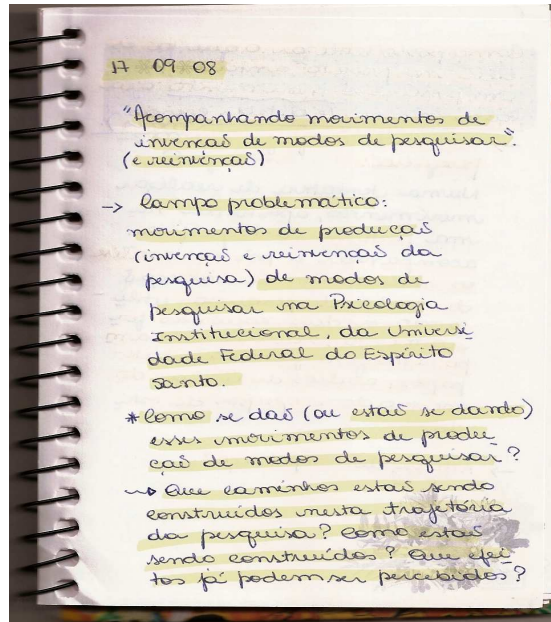 17 09 08
"Acompanhando movimentos de
invenção de modos de pesquisar".
(e reinvenção)
-> Campo problemático:
movimentos de produção
(invenção e reinvenção da
pesquisa) de modos de
pesquisar na Psicologia
Institucional, da Universi-
dade Federal do Espírito
Santo.
* Como se dão (ou estão se dando)
esses movimentos de produ-
ção de modos de pesquisar?
→ Que caminhos estão sendo
construídos nesta trajetória
da pesquisa? Como estão
sendo construídos? Que efei-
tos já podem ser percebidos?